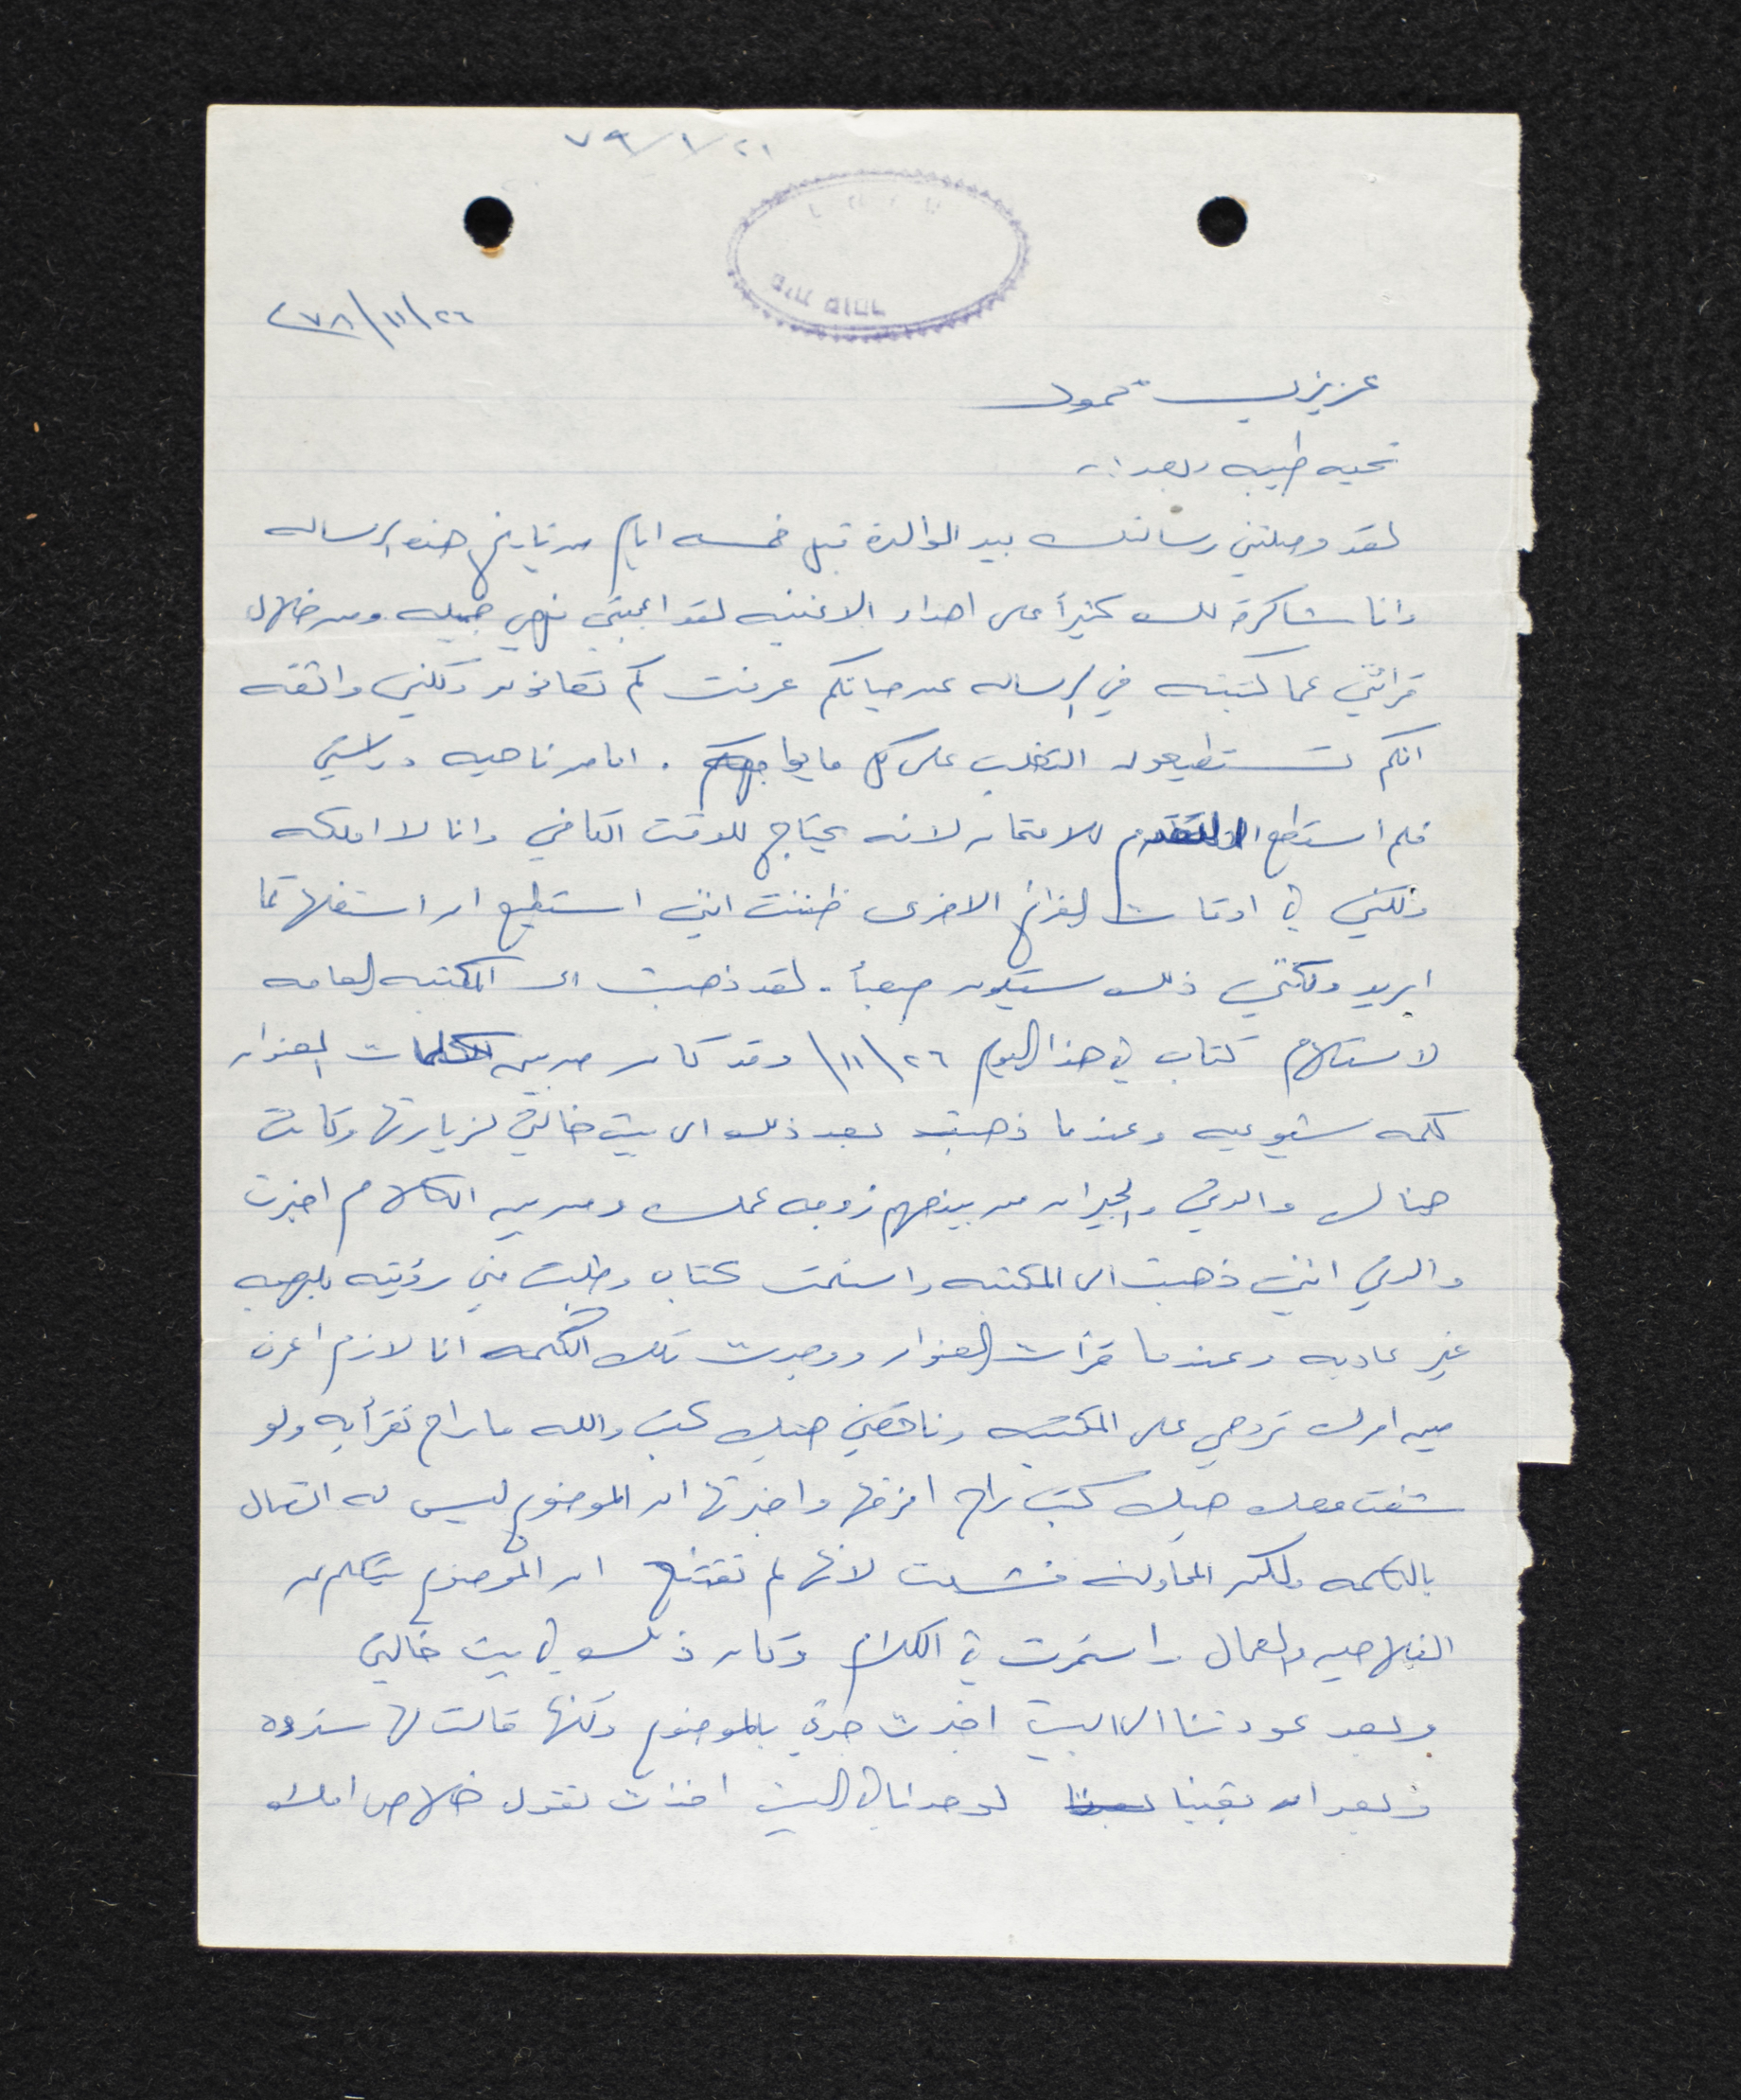 ٧٩/١/٢١
٧٨/١١/٢٦
عزيزي محمود
تحيه طيبه وبعد..
لقد وصلتني رسالتك بيد الوالدة قبل خمسه ايام من تاريخ هذه الرساله
وانا شاكرة لك كثيراً على اهداء الاغنيه لقد اعجبتني فهي جميله ومن خلال
قرائتي عما كتبته في الرساله عن حياتكم عرفت كم تعانون ولكني واثقه
انكم تستطيعون التغلب على كل ما يواجهكم. اما من ناحيه دراستي
فلم استطع التقدم للامتحان لانه يحتاج للوقت الكافي وانا لا املكه
ولكني في اوقات الفراغ الاخرى ظننت انني استطيع ان استغلها كما
اريد ولكنني ذلك سيكون صعباً. لقد ذهبت الى المكتبه العامه
لاستلام كتاب في هذا اليوم ١١/٢٦ وقد كان من بين كلمات العنوان
كلمه شيوعيه وعندما ذهبت بعد ذلك الى بيت خالتي لزيارتها وكانت
هناك والدتي والجيران من بينهم زوجه عمك ومن بين الكلام اخبرت
والدتي انني ذهبت الى المكتبه واستلمت كتاب وطلبت مني رؤيته بلهجه
غير عاديه وعندما قرأت العنوان ووجدت تلك الكلمه انا لازم اعرف
مين امرك تروحي على المكتبه وناقصني هيك كتب والله ما راح تقرأيه ولو
شفت معك هيك كتب راح امزقها واخبرتها ان الموضوع ليس له اتصال
بالكلمه ولكن المحاوله فشلت لانها لم تقتنع ان الموضوع يتكلم عن
الفلاحين والعمال واستمرت في الكلام وكان ذلك في بيت خالتي
وبعد عودتنا الى البيت اخبرت جدتي بالموضوع ولكنها قالت لها
وبعد ان بقينا لوحدنا في البيت اخذت تقول خلاص املك